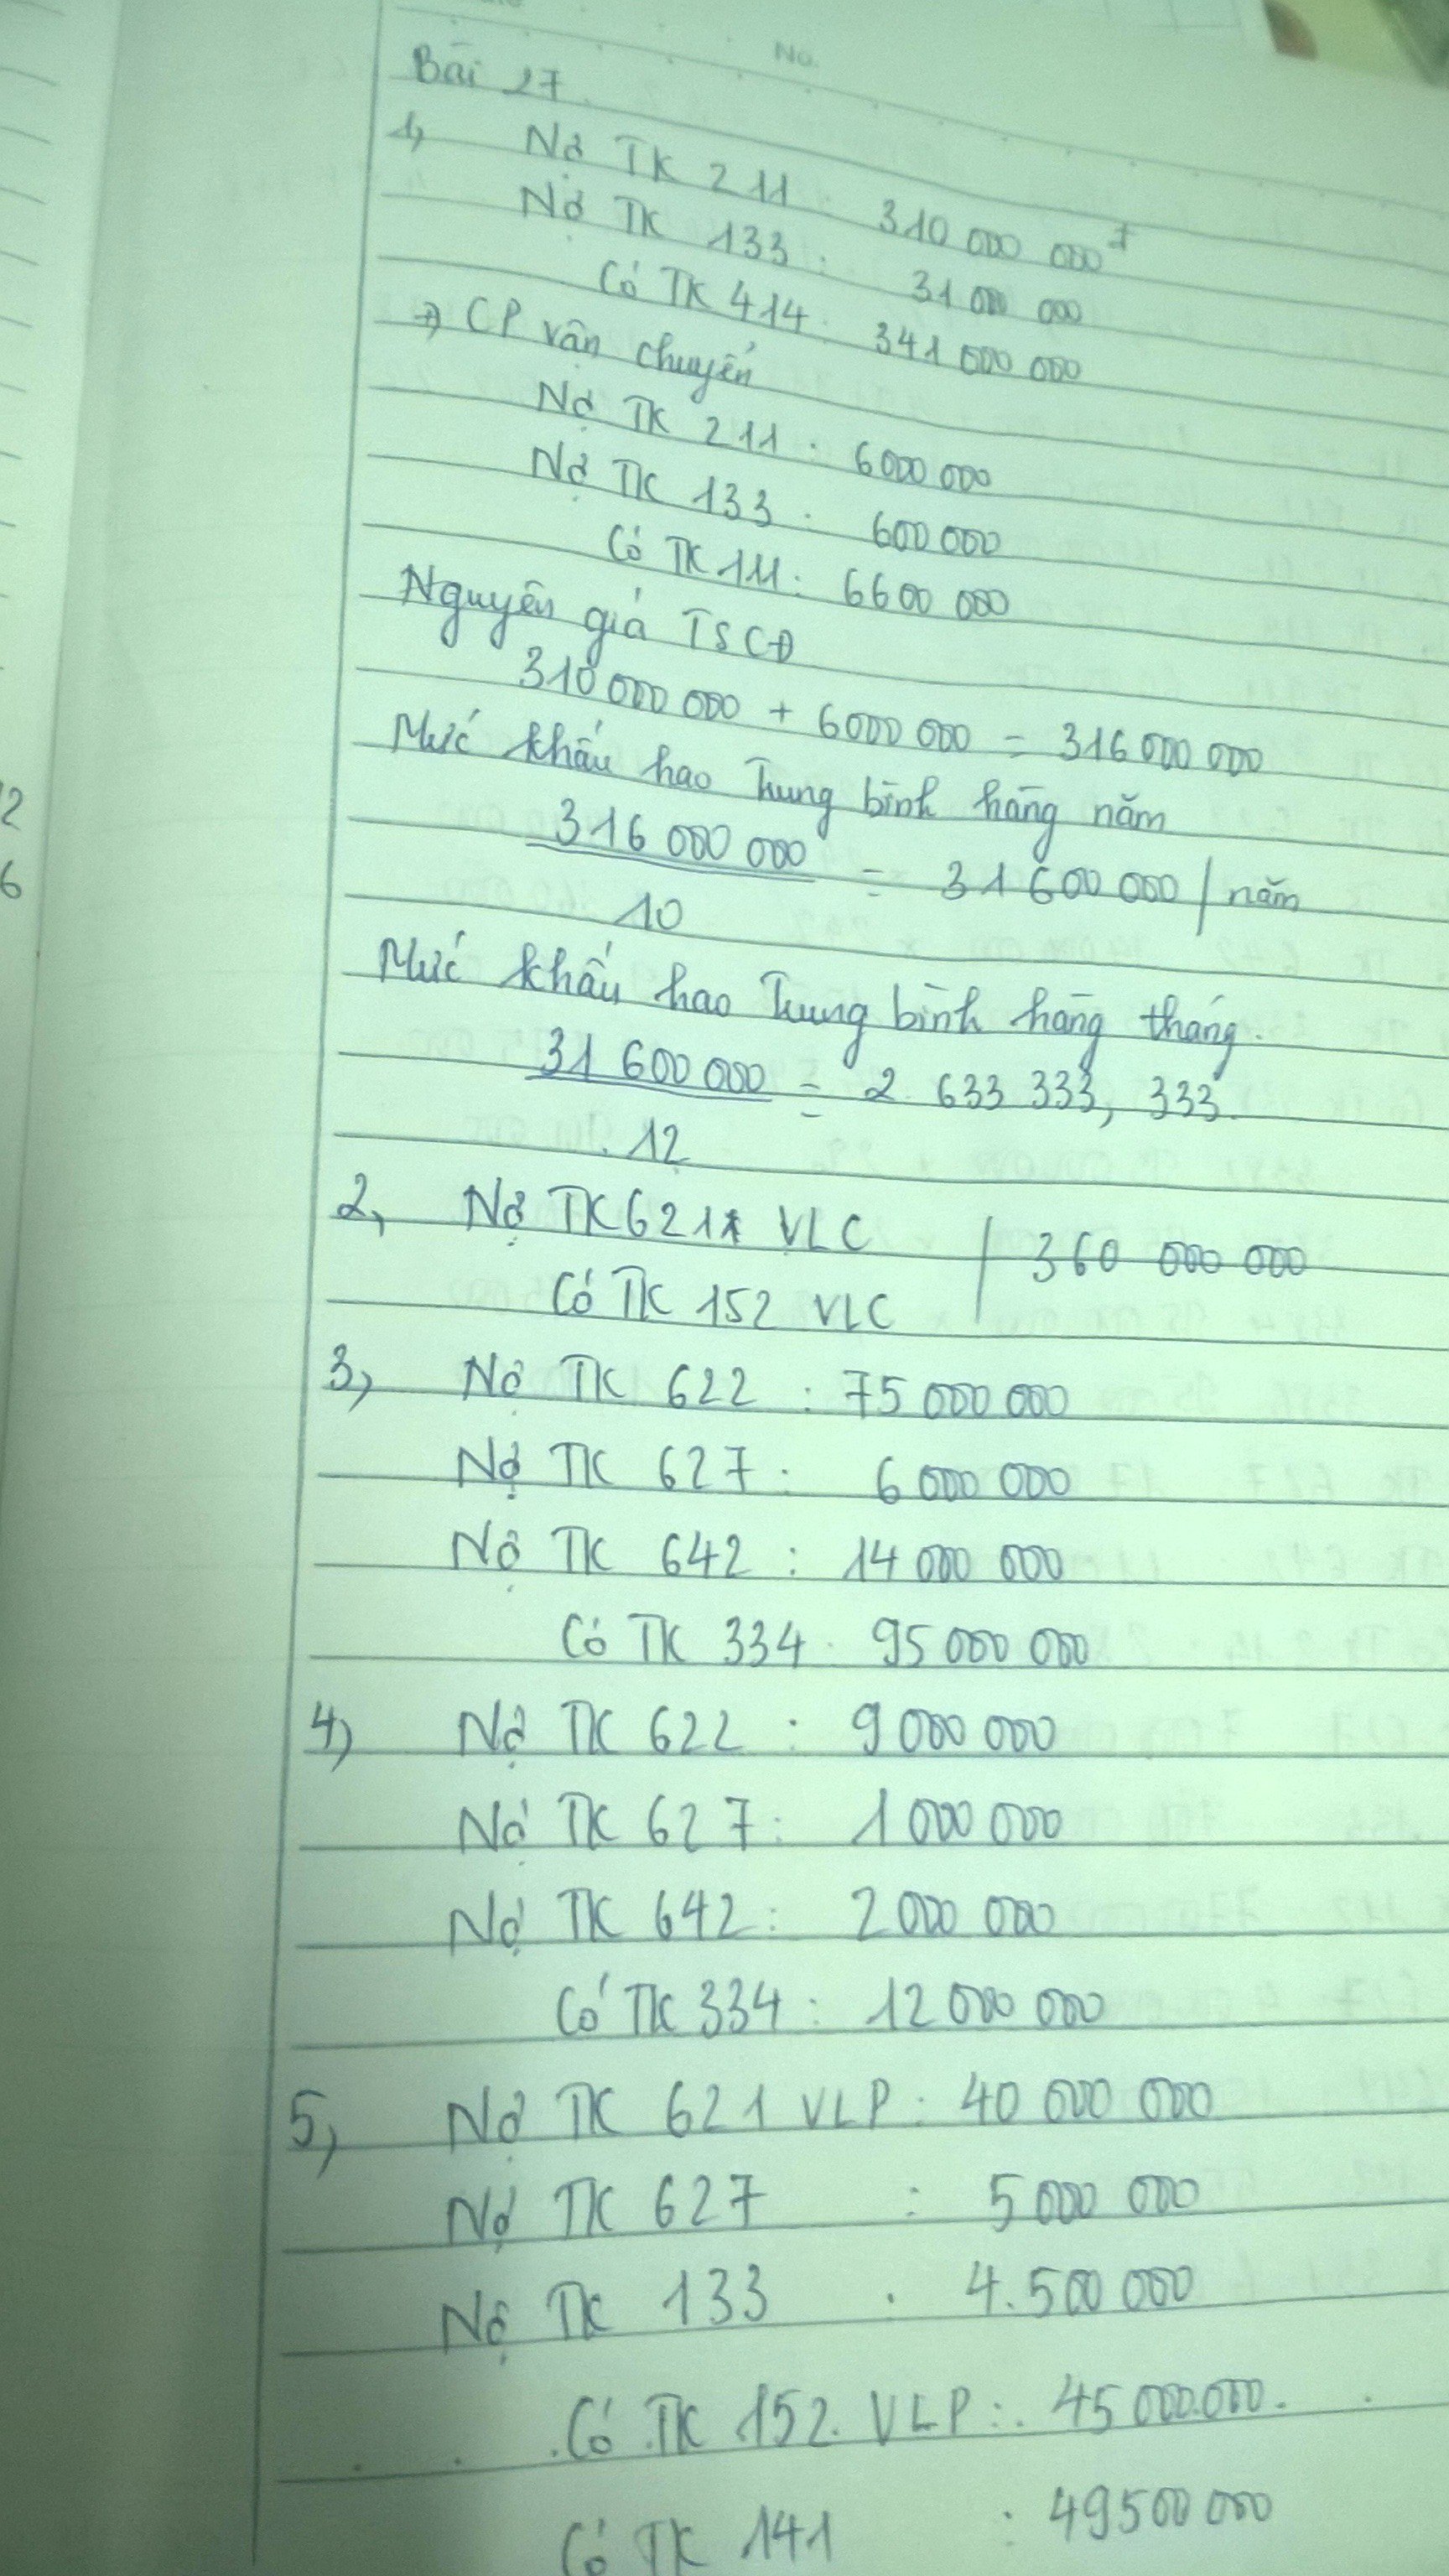 No.
Bài 27.
1, Nợ TK 211 : 310 000 000
Nợ TK 133 : 31 000 000
Có TK 414 : 341 000 000
→ CP vận chuyển
Nợ TK 211 : 6000 000
Nợ TK 133 : 600 000
Có TK 111 : 6600 000
Nguyên giá TSCĐ
310 000 000 + 6000 000 = 316 000 000
Mức khấu hao Trung bình hàng năm
316 000 000 / 10 = 31 600 000 / năm
Mức khấu hao Trung bình hàng tháng.
31 600 000 / 12 = 2 633 333, 333.
2, Nợ TK 621 VLC / 360 000 000
Có TK 152 VLC
3, Nợ TK 622 : 75 000 000
Nợ TK 627 : 6 000 000
Nợ TK 642 : 14 000 000
Có TK 334 : 95 000 000
4, Nợ TK 622 : 9 000 000
Nợ TK 627 : 1 000 000
Nợ TK 642 : 2 000 000
Có TK 334 : 12 000 000
5, Nợ TK 621 VLP : 40 000 000
Nợ TK 627 : 5 000 000
Nợ TK 133 : 4.500 000
Có TK 152 VLP : 45 000.000.
Có TK 141 : 49500 000
2
6